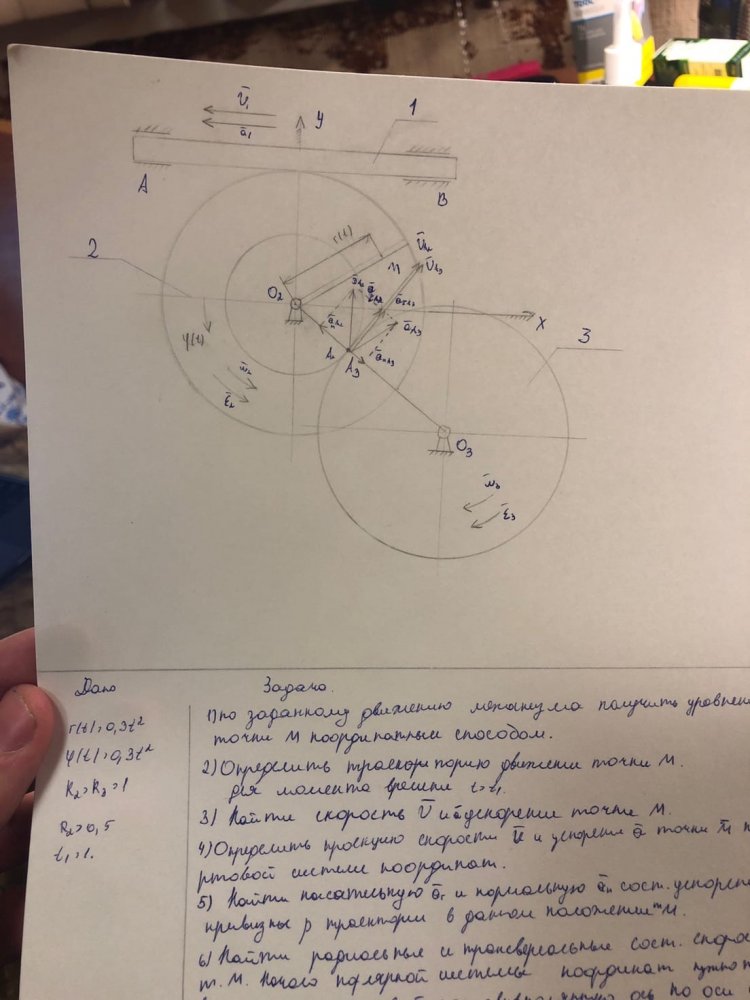 V̄₁
ā₁
y
1
A
B
r(t)
2
M
O₂
X
3
φ(t)
A₃
O₃
ω̄₃
ε̄₃
Дано
Задача.
r(t)=0,3t²
1) по заданному движению механизма получить уравнени
точки М координатным способом.
φ(t)=0,3t²
2) Определить траекторию движения точки М.
R₂=R₃=1
для момента времени t=t₁
3) Найти скорость V̄ и ускорение точки М.
R₂=0,5
4) Определить проекцию скорости V̄ и ускорения ā точки М
t₁=1.
ртовой системе координат.
5) Найти касательную ā и нормальную āₙ сост. ускорен
кривизны ρ траектории в данном положении т М.
6) Найти радиальные и трансверсальные сост. скорос
т. М. Начало полярной системы координат нужно
ось по оси